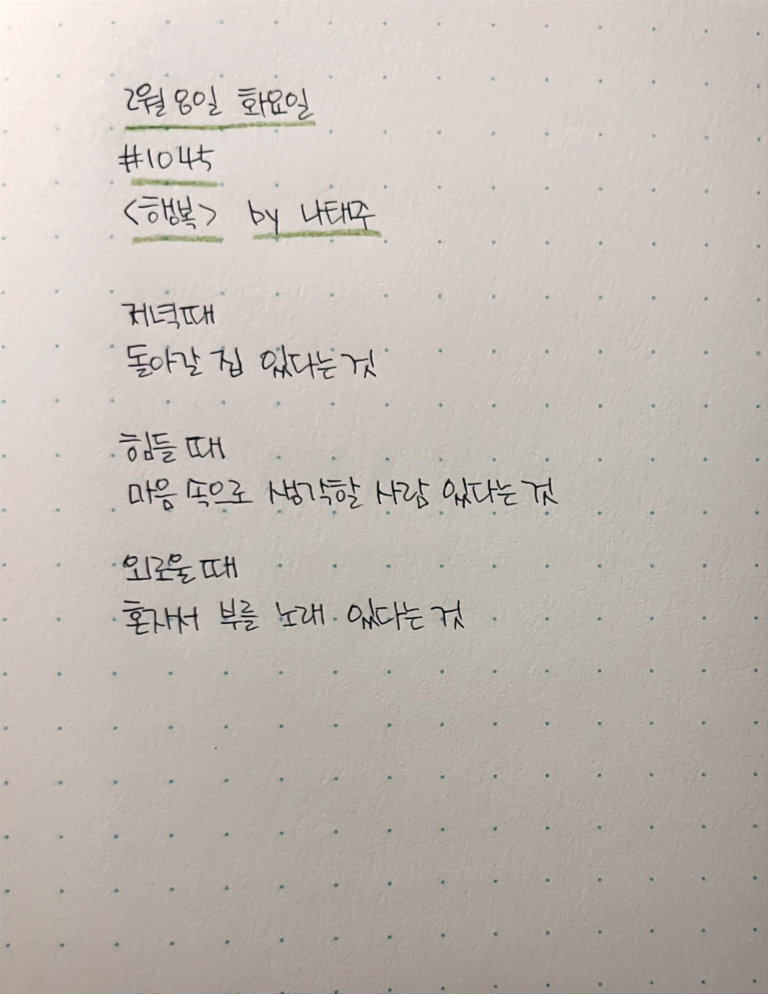 2월 8일 화요일
#1045
<행복> by 나태주
저녁때
돌아갈 집 있다는 것
힘들 때
마음 속으로 생각할 사람 있다는 것
외로울 때
혼자서 부를 노래 있다는 것